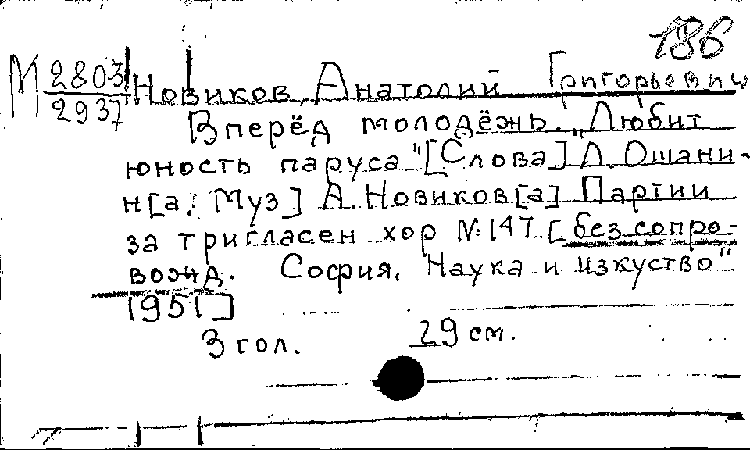 186
М 2803/2937 Новиков, Анатолий Григорьевич
Вперёд молодёжь. "Любит
юность паруса" [Слова] Л. Ошани-
н[а. Муз] А. Новиков[а] Партии
за тригласен хор № 147 [без сопро-
вожд. София, "Наука и изкуство"
1951]
3 гол. 29 см.